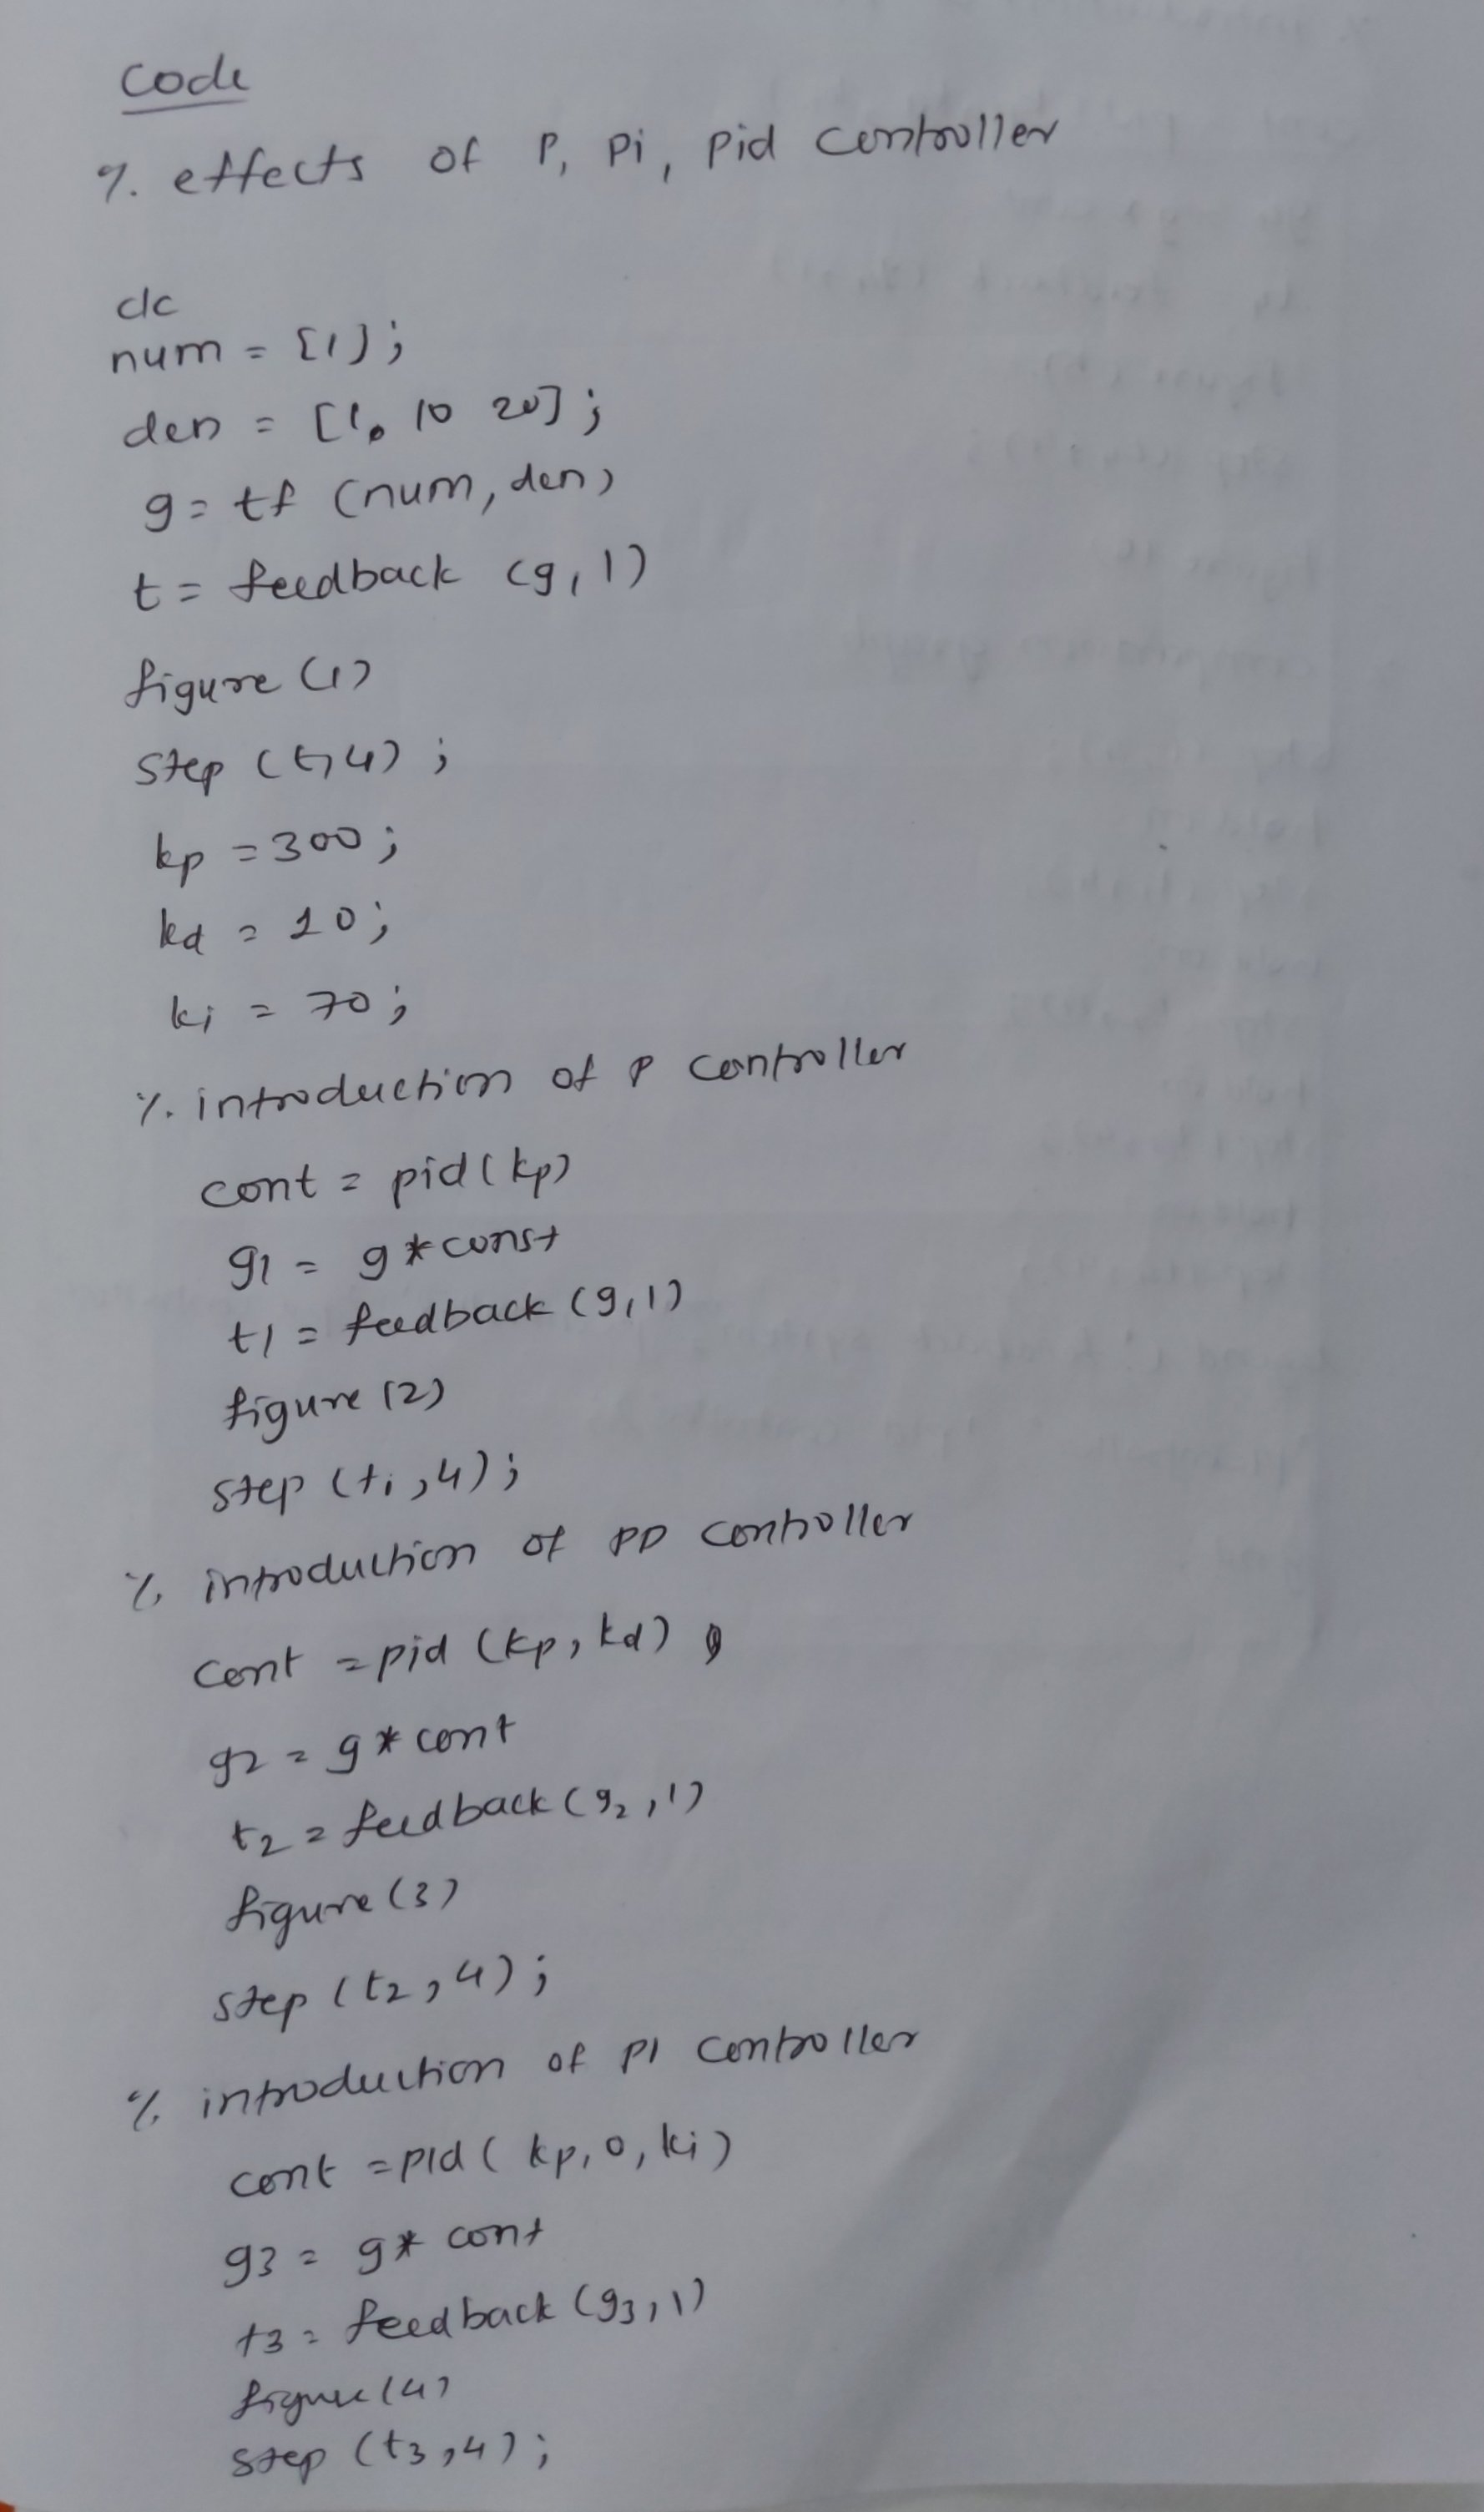 Code
% effects of P, Pi, Pid controller
clc
num = [1];
den = [1, 10 20];
g = tf (num, den)
t = feedback (g, 1)
figure (1)
step (t, 4) ;
kp = 300;
kd = 10;
ki = 70;
% introduction of P controller
cont = pid(kp)
g1 = g * const
t1 = feedback (g, 1)
figure (2)
step (ti, 4);
% introduction of PD controller
cont = pid (kp, kd)
g2 = g * cont
t2 = feedback (g2, 1)
figure (3)
step (t2, 4);
% introduction of PI controller
cont = pid ( kp, 0, ki)
g3 = g * cont
t3 = feedback (g3, 1)
figure (4)
step (t3, 4);